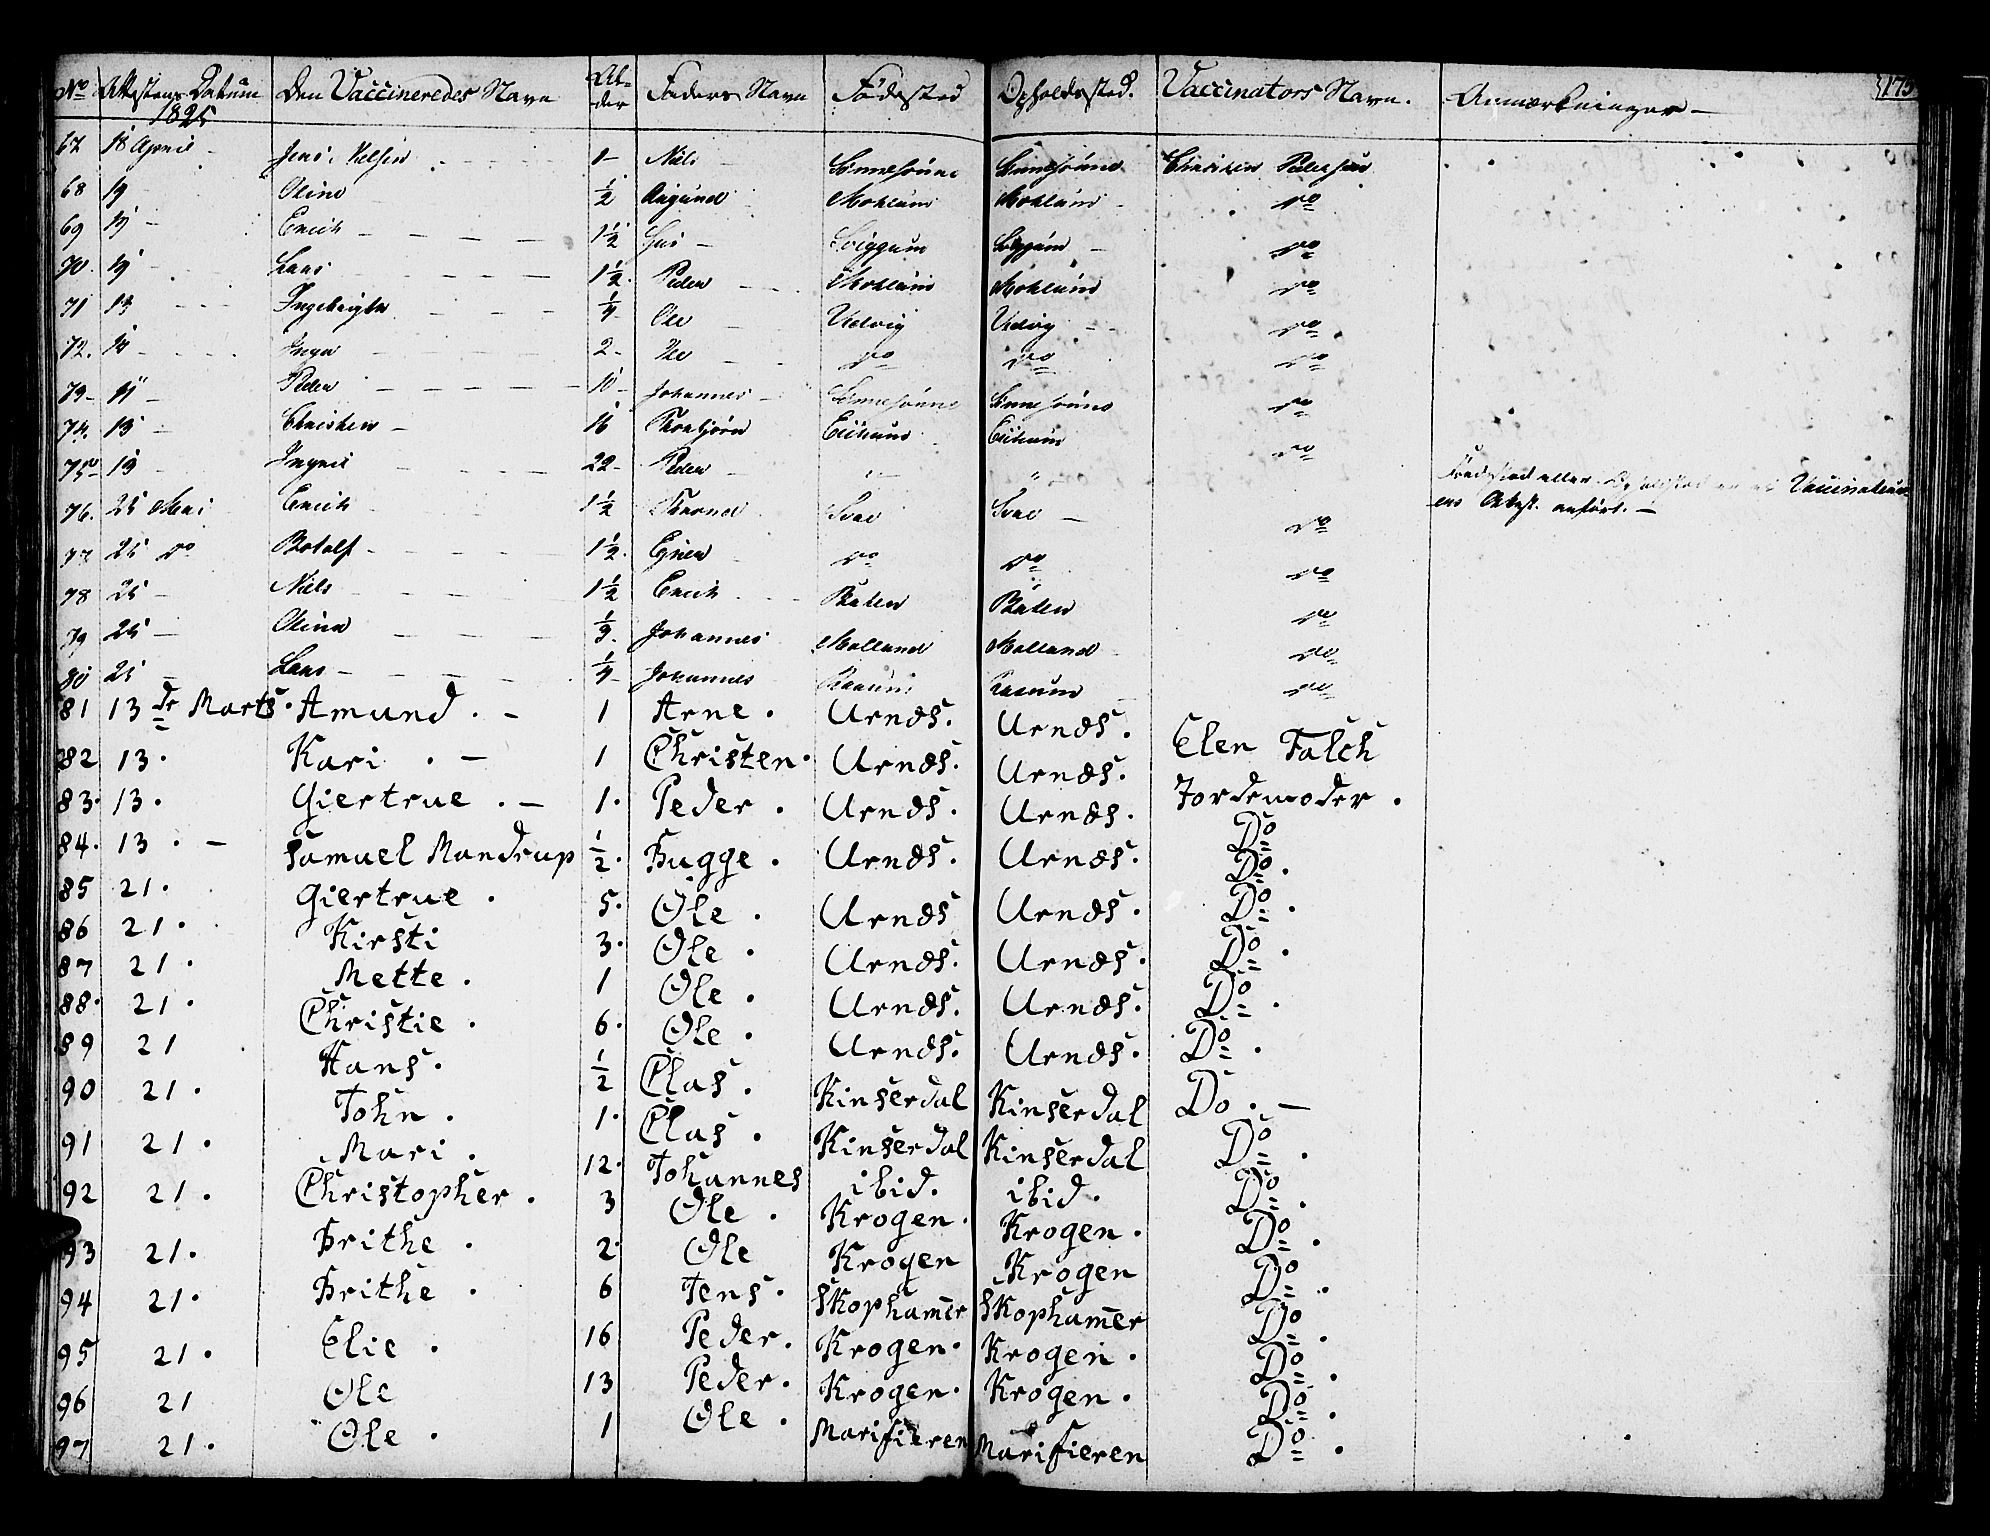 No Attestens Datum Den Vaccineredes Navn Al- Faders Navn Fødested Opholdssted. Vaccinators Navn. Anmærkninger – 175
1825 der
67 18 April – Jens. Nelsen 1 – Niels Sønnesønne Sønnesønne Christen Pedersen
68 19 – Oline ½ Aagund Moklund Moklund – Do
69 19 – Erich – 1½ Jens – Sviggum Sviggum – Do
70. 19 – Lars 1½. Peder Moklund Moklund Do
71 13 Ingebrigte ¼ Ole Udvig Udvig – Do
72. 18 – Inger 2 – Ole Do Do Do
73 – 11 – Peder 10 – Johannes – Sønnesønne Sønnesønne Do
74. 13 – Christen – 16 Thorbjørn Eikum Eikum Do
75 19 Ingeri 22 – Peder – " – " Fødested eller Opholdsted er ei Vaccinateur-
ens Attest. anført. –
76. 25 Mai Erich 1½ Svae Svae – Do
77 25 Do Botolf – 1½. Do Do Do
78 25 – Niels 1½ Erich Do
79 25 – Olina ⅓. Johannes Molland Molland Do
80 25 – Lars – ¼ Johannes Do
81 13de Marts. Amund. – 1 Arne. Urnæs. Urnæs. Elen Falch
82 13. Kari. – 1 Christen. Urnæs. Urnæs. Jordemoder.
83. 13. Giertrue. – 1. Peder. Urnæs. Urnæs. Do
84. 13. – Samuel Mandrup ½. Bugge. Urnæs. Urnæs. Do.
85 21. Giertrue. 5. Ole. Urnæs Urnæs. Do.
86 21. Kirsti 3. Ole. Urnæs. Urnæs. Do.
87 21. Mette. 1 Ole. Urnæs. Urnæs. Do.
88. 21. Christie. 6. Ole. Urnæs. Urnæs. Do.
89 21 Hans. ½ Clas. Kinserdal Kinserdal Do. –
90 21. John. 1. Clas. Kinserdal Kinserdal Do.
91 21. Mari. 12. Johannes ibid. ibid. Do.
92 21. Christopher. 3 Ole. Krogen. Krogen. Do.
93 21. Brithe. 2. Ole Krogen Krogen Do.
94 21. Brithe. 6 Jens. Skophamer Skophamer Do.
95 21. Elie. 16 Peder. Krogen. Krogen. Do.
96 21 Ole 13 Peder. Krogen. Krogen. Do.
97 21. Ole. 1 Ole. Marifieren Marifieren Do.